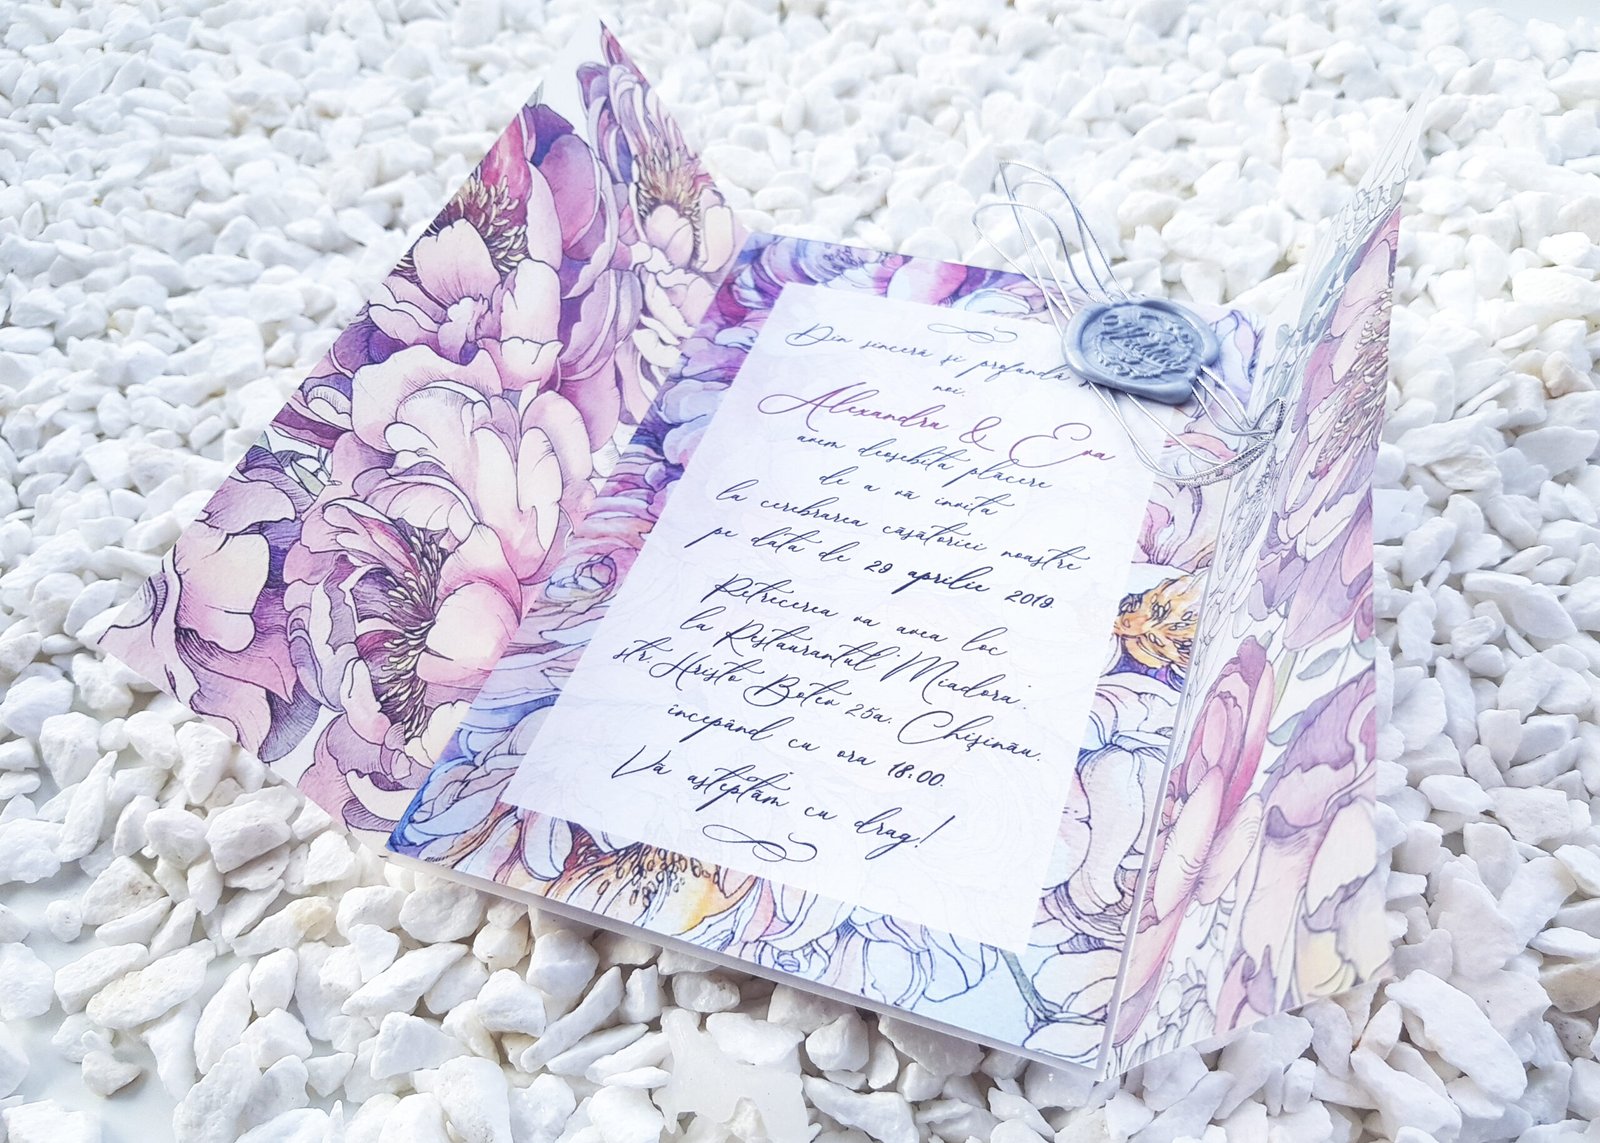 Din sinceră și profundă
noi,
Alexandru & Eva
avem deosebita plăcere
de a vă invita
la cerebrarea căsătoriei noastre
pe data de 29 aprilie 2019.
Petrecerea va avea loc
la Restaurantul "Miadora",
str. Hristo Botev 25a, Chișinău,
începând cu ora 18:00.
Vă așteptăm cu drag!